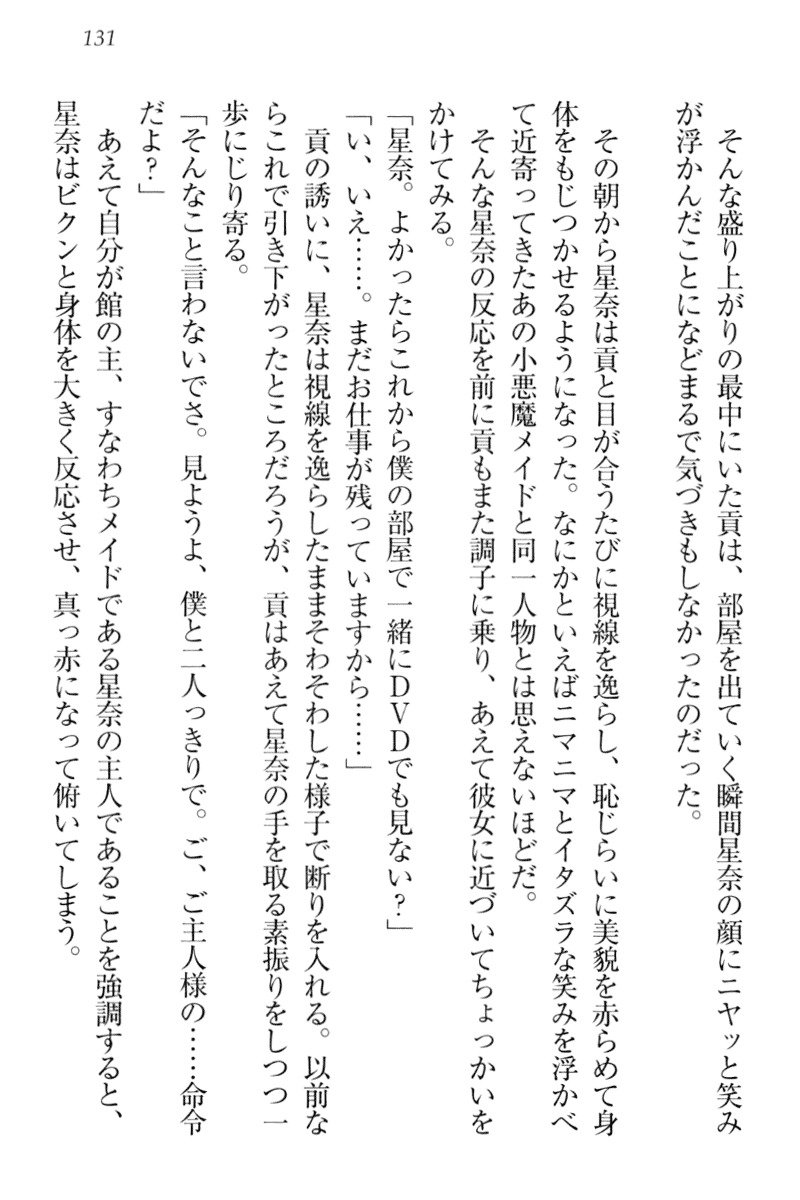 131
そんな盛り上がりの最中にいた貢は、部屋を出ていく瞬間星奈の顔にニヤッと笑み
が浮かんだことになどまるで気づきもしなかったのだった。
その朝から星奈は貢と目が合うたびに視線を逸らし、恥じらいに美貌を赤らめて身
体をもじつかせるようになった。なにかといえばニマニマとイタズラな笑みを浮かべ
て近寄ってきたあの小悪魔メイドと同一人物とは思えないほどだ。
そんな星奈の反応を前に貢もまた調子に乗り、あえて彼女に近づいてちょっかいを
かけてみる。
「星奈。よかったらこれから僕の部屋で一緒にDVDでも見ない?」
「い、いえ……。まだお仕事が残っていますから……」
貢の誘いに、星奈は視線を逸らしたままそわそわした様子で断りを入れる。以前な
らこれで引き下がったところだろうが、貢はあえて星奈の手を取る素振りをしつつ一
歩にじり寄る。
「そんなこと言わないでさ。見ようよ、僕と二人っきりで。ご、ご主人様の……命令
だよ?」
あえて自分が館の主、すなわちメイドである星奈の主人であることを強調すると、
星奈はビクンと身体を大きく反応させ、真っ赤になって俯いてしまう。